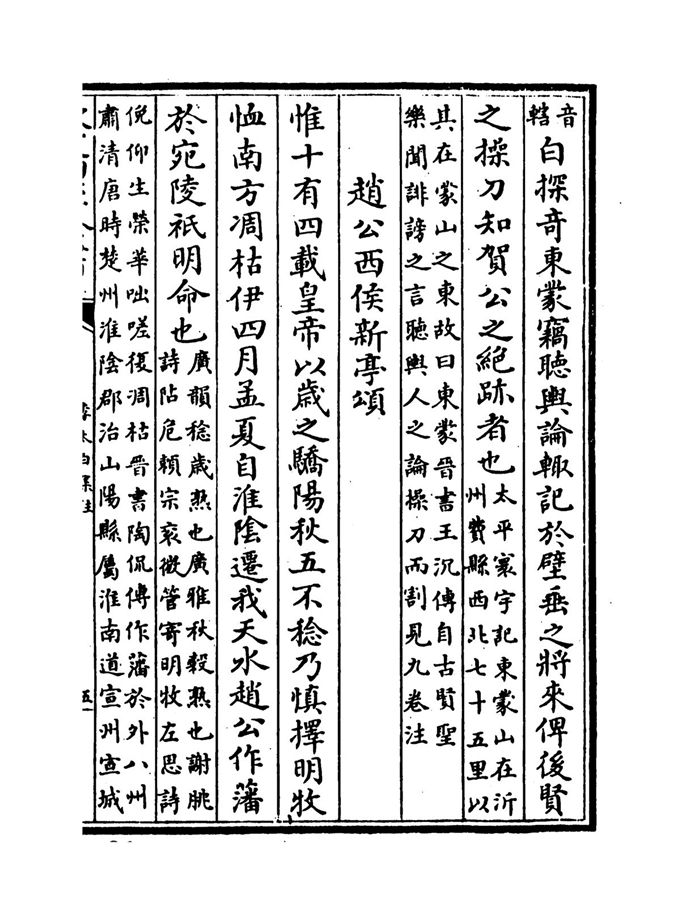 音
轄
白探奇東蒙竊聽輿論輙記於壁垂之將來俾後賢
之操刀知賀公之絕跡者也
太平寰宇記東蒙山在沂
州費縣西北七十五里以
其在蒙山之東故曰東蒙晉書王沉傳自古賢聖
樂聞誹謗之言聽輿人之論操刀而割見九卷注
趙公西侯新亭頌
惟十有四載皇帝以歲之驕陽秋五不稔乃慎擇明牧
恤南方凋枯伊四月孟夏自淮陰遷我天水趙公作藩
於宛陵祗明命也
廣韻稔歲熟也廣雅秋穀熟也謝朓
詩阽危賴宗衮微管寄明牧左思詩
俛仰生榮華咄嗟復凋枯晉書陶侃傳作藩於外八州
肅清唐時楚州淮陰郡治山陽縣屬淮南道宣州宣城
李太白集注